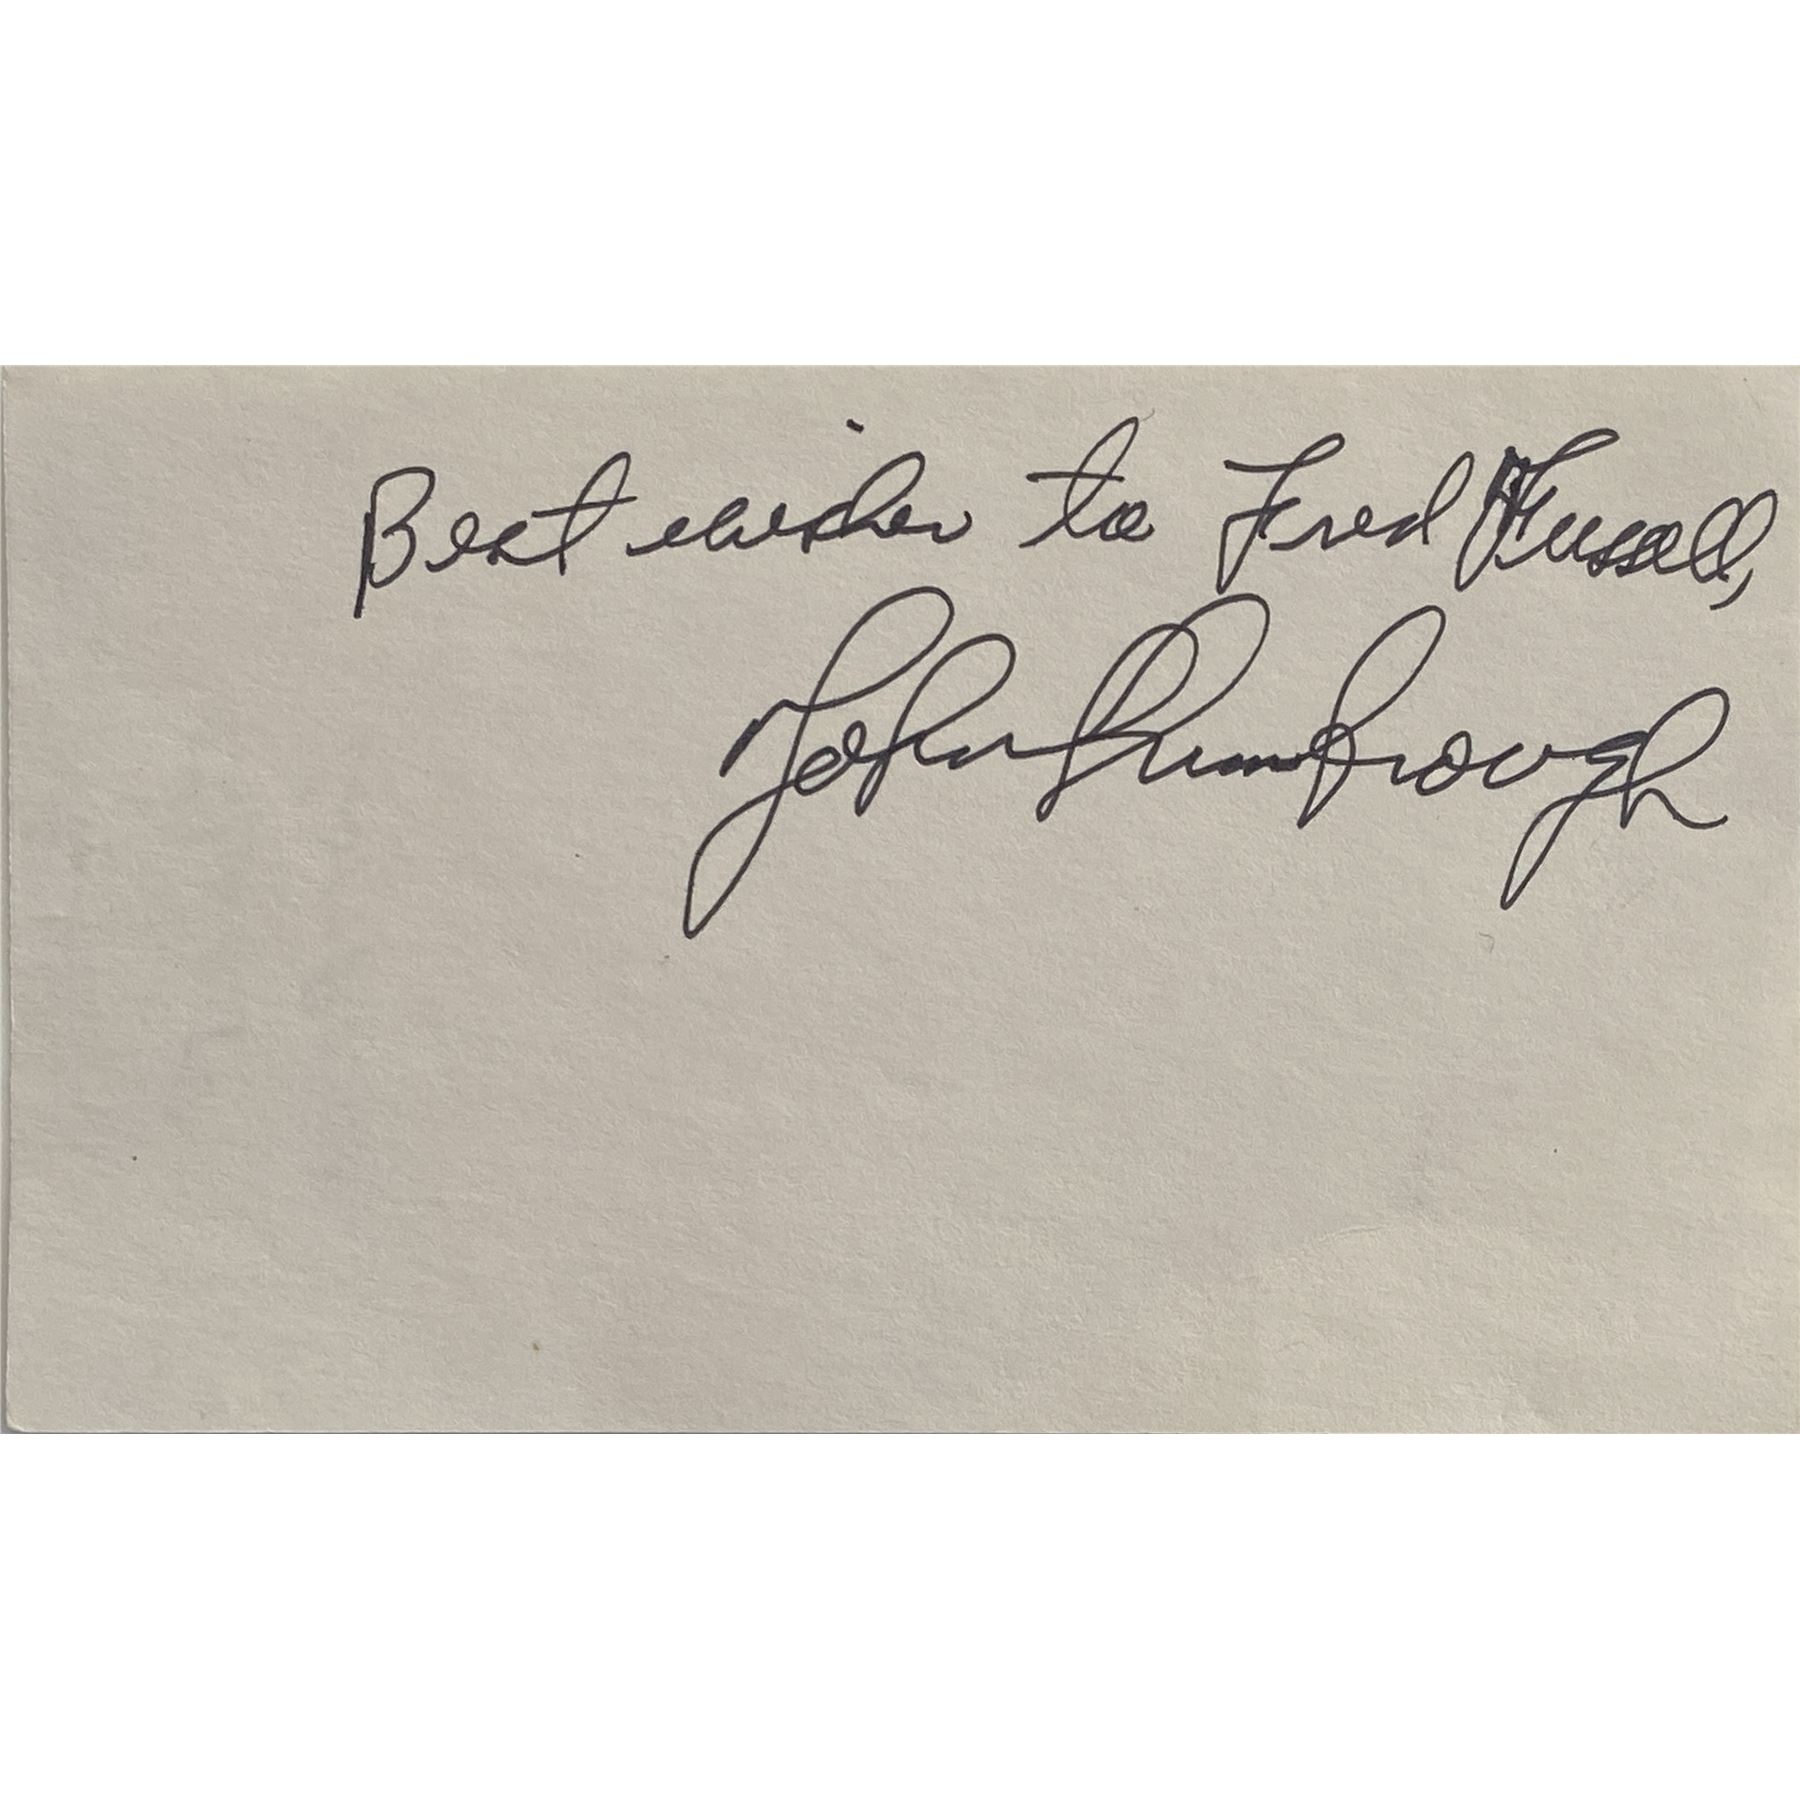 Best wishes to Fred Fussell,
John Rumbrough